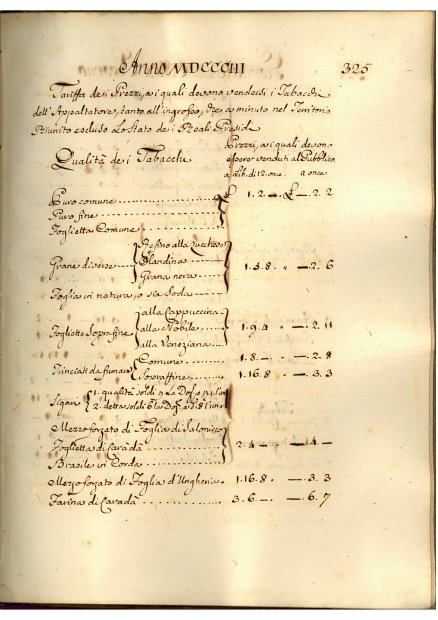 Anno MDCCCIII 325
Tariffa dei Prezzi, ai quali devono vendersi i Tabacchi
dell'Appaltatore, tanto all'ingrosso, che a minuto nel Territorio
Riunito escluso lo Stato dei Reali Presidi
Qualità dei Tabacchi
Prezzi, ai quali devono
essere venduti al Pubblico
a Lib. di 12. once a once
Puro comune £ 1. 2. — £ —. 2. 2
Puro fine
Foglietta Comune
Grane diverse
Refino alla Zucchero
Olandina
Grana nova
1. 5. 8. " —. 2. 6
Foglia in natura, o sia Soda
Fogliette Soprafine
alla Cappuccina
alla Nobile
alla Veneziana
1. 9. 4 " —. 2. 11
Trinciati da fumare
Comune 1. 8. — —. 2. 8
Sopraffine 1. 16. 8 —. 3. 3
Sigari
1. qualità soldi
2. detta soldi 6 la
Mezzo forzato di Foglia di Salonicco
Foglietta di Caradà 2. 4. — —. 4 —
Brasile in Corda
Mezzo forzato di Foglia d'Ungheria 1. 16. 8 —. 3. 3
Farina di Caradà 3. 6. — —. 6. 7